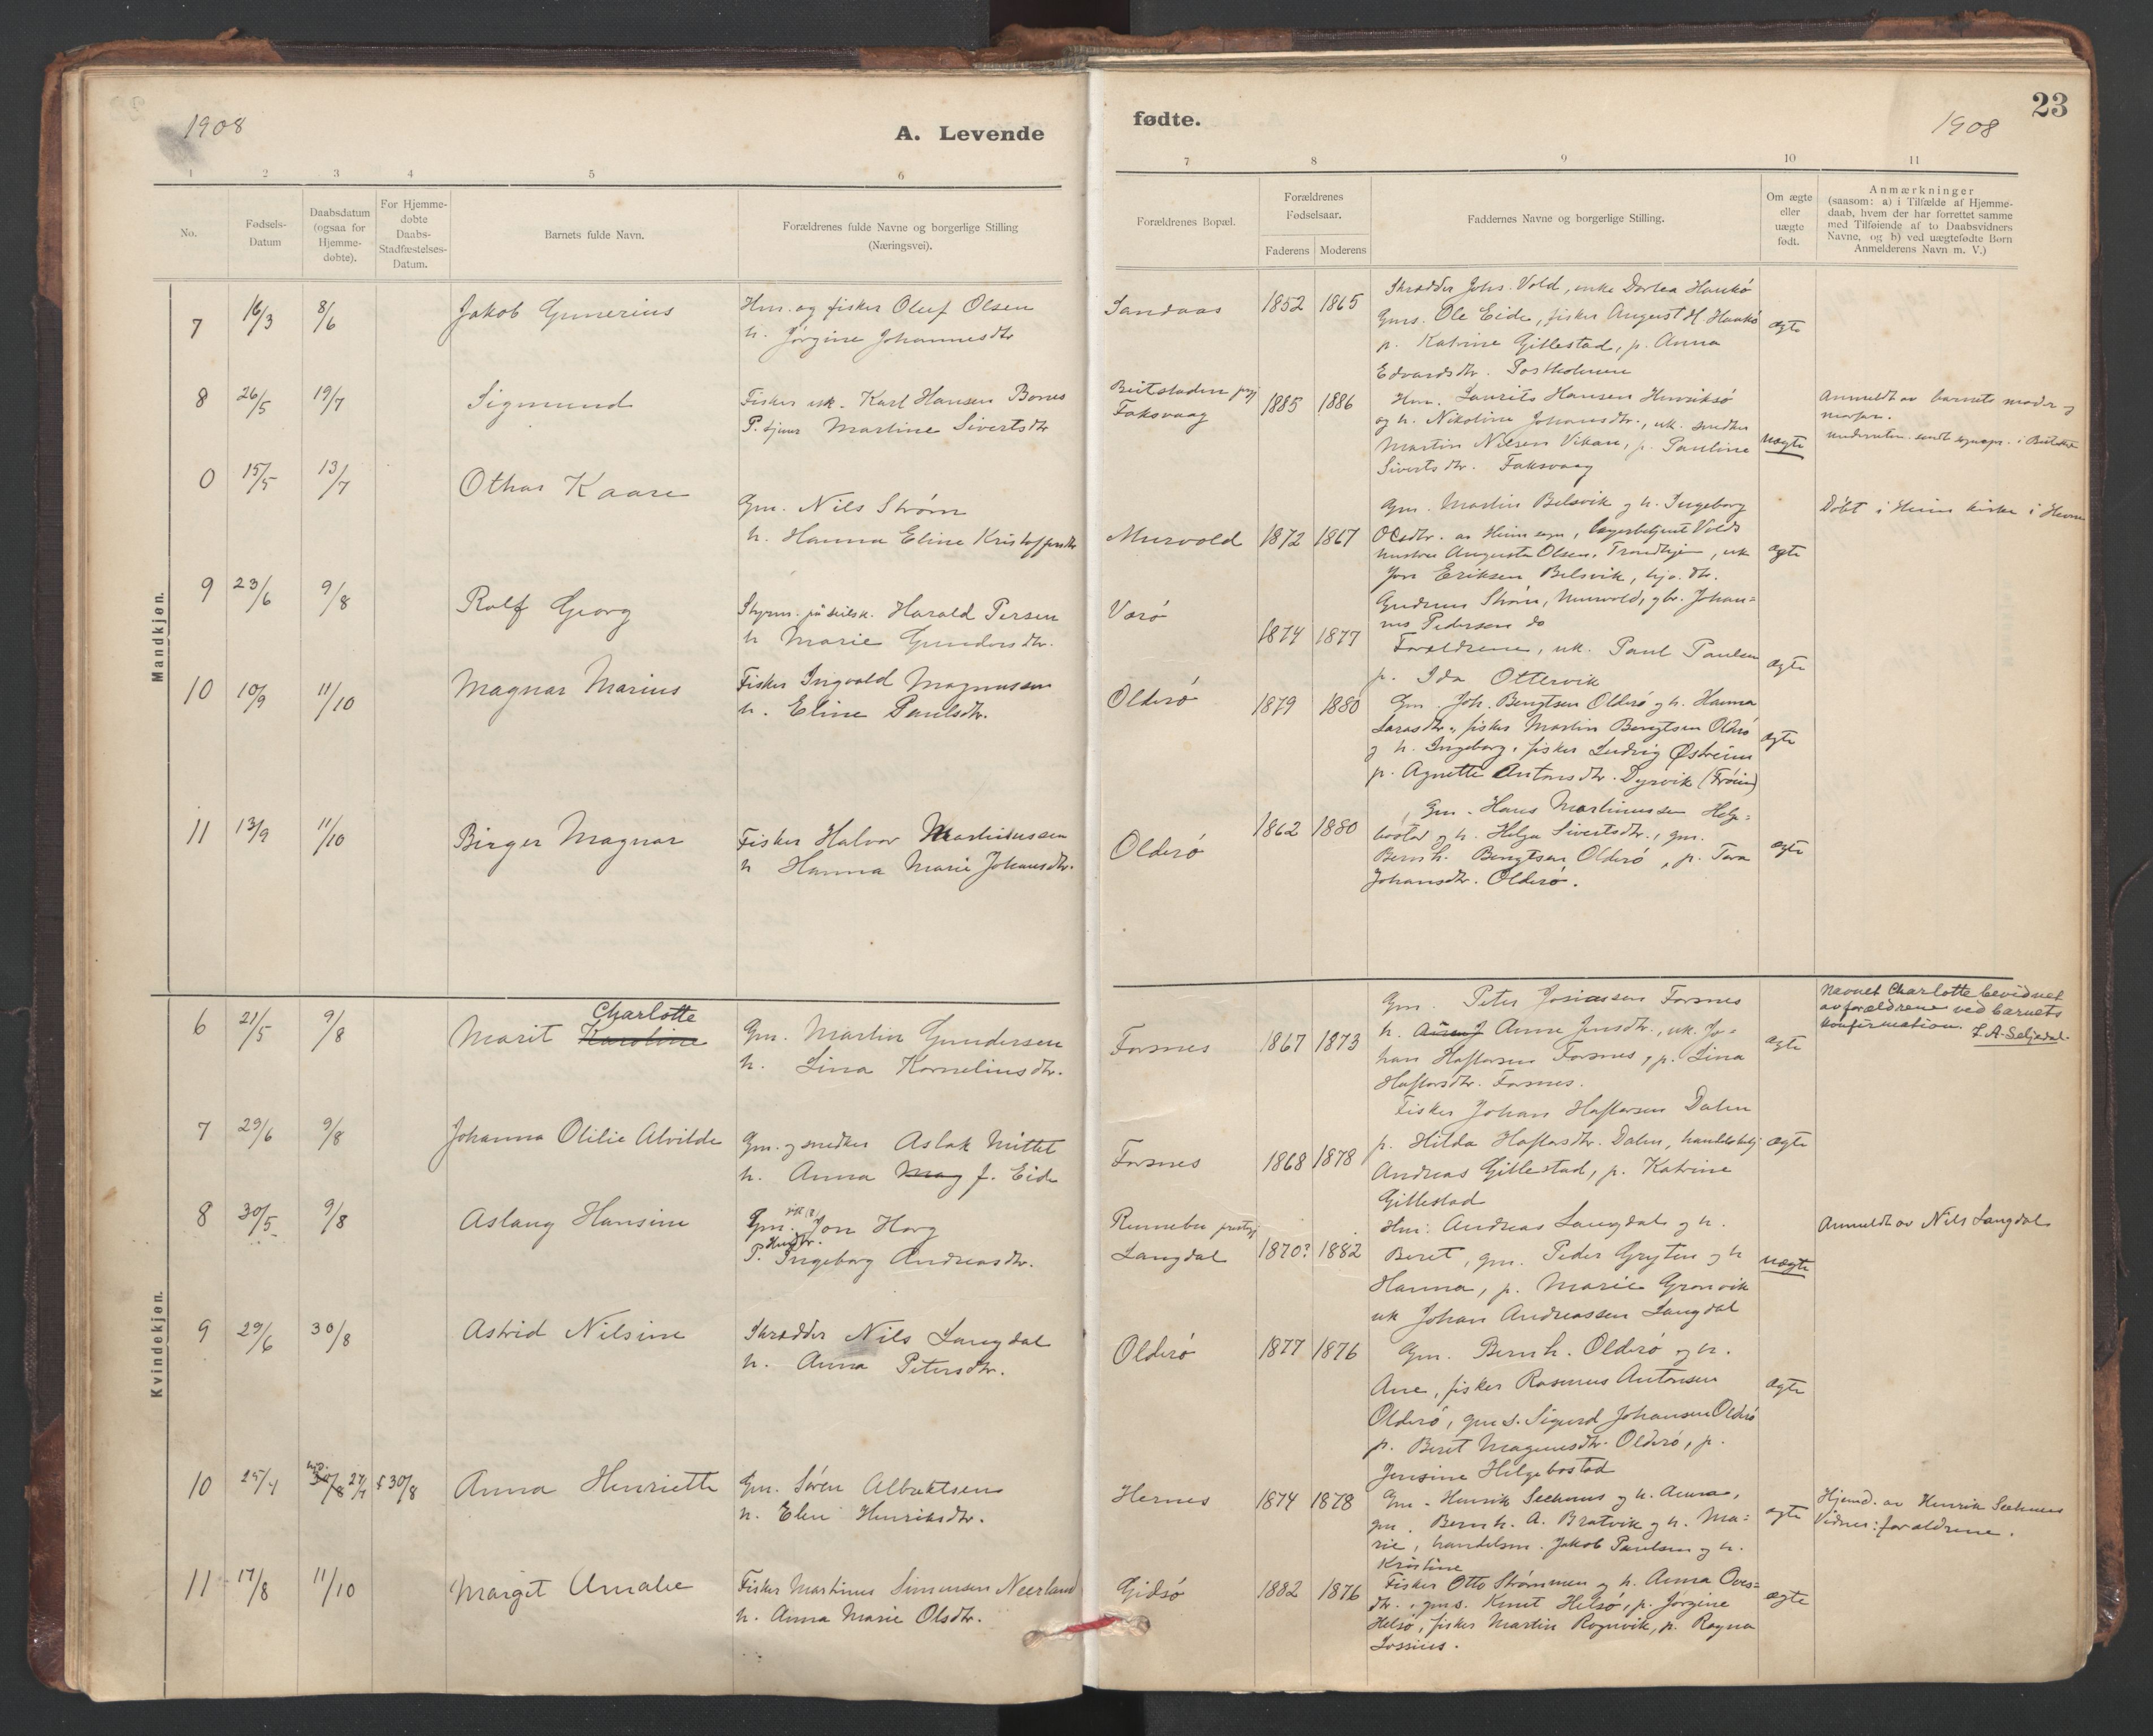 1908
A. Levende
1 2 3 4 5 6
No.
Fødsels-
Datum
Daabsdatum
(ogsaa for
Hjemme-
døbte).
For Hjemme-
døbte
Daabs-
Stadfæstelses-
Datum.
Barnets fulde Navn.
Forældrenes fulde Navne og borgerlige Stilling
(Næringsvei).
Mandkjøn.
7 16/3 8/6 Jakob Gunerius Hm. og fisker Oluf Olsen
h. Jørgine Johannesdtr
8 26/5 19/7 Sigmund Fisker uk. Karl Hansen Bones
P. tjener Martine Sivertsdtr
0 15/5 13/7 Othar Kaare
Gm. Nils Strøm
h. Hanna Eline Kristoffersdtr
9 23/6 9/8 Rolf Georg Styrm. på seilsk. Harald Persen
h Marie Gundersdtr.
10 10/9 11/10 Magnar Marius Fisker Ingvald Magnussen
h. Eline Paulsdtr.
11 13/9 11/10 Birger Magnar Fisker Halvor Martinussen
h Hanna Marie Johansdtr.
Kvindekjøn.
Charlotte
6 21/5 9/8 Marit Karoline Gm. Martin Gundersen
h. Lina Korneliusdtr.
7 29/6 9/8 Johanna Otilie Alvilde Gm. og snedker Aslak Mittet
h. Anna Mag f. Eide
8 30/5 9/8 Aslaug Hansine Gm. Jon Horg
P. Ingeborg Andreasdtr.
9 29/6 30/8 Astrid Nilsine Skrædder Nils Langdal
h. Anna Petersdtr.
10 25/4 30/8 27/4 30/8 Anna Henriette Gm. Søren Albrektsen
h. Elen Henriksdtr.
11 17/8 11/10 Margit Amalie Fisker Martinus Simensen Neerland
h. Anna Marie Olsdtr.
fødte.
1908
23
7 8 9 10 11
Forældrenes Bopæl.
Forældrenes
Fødselsaar.
Faderens Moderens
Faddernes Navne og borgerlige Stilling.
Om ægte
eller
uægte
født.
Anmærkninger
(saasom: a) i Tilfælde af Hjemme-
daab, hvem der har forrettet samme
med Tilføiende af to Daabsvidners
Navne, og b) ved uægtefødte Børn
Anmelderens Navn m. V.)
Skrædder Johs. Vold, enke Dortea Haukø
Sandaas 1852 1865 Gms. Ole Eide, fisker August H. Haukø ægte
p. Katrine Gillestad, p. Anna
Edvardsdtr. Postholmen
Beitstaden prgj
Faksvaag 1885 1886 Hm. Laurits Hansen Henriksø
og h. Nikoline Johansdtr., uk. snedker
Martin Nilsen Vikan, p. Pauline uægte
Sivertsdtr. Faksvaag
Anmeldt av barnets moder og
morfar.
Gm. Martin Belsvik og h. Ingeborg
Murvold 1872 1867 Olsdtr. av Heim sogn, lagerbetjent Volds
hustru Augusta Olsen, Trondhjem, uk ægte
Jon Eriksen Belsvik, hjv. dtr.
Gudrun Strøm, Murvold, gbr. Johan=
nes Pedersen do
Døbt i Heim kirke i Hevne
Værø 1874 1877 Forældrene, uk. Paul Paulsen ægte
p. Ida Ottervik
Olderø 1879 1880 Gm. Joh. Bengtsen Olderø og h. Hanna
Larsdtr., fisker Martin Bengtsen Olderø ægte
og h. Ingeborg, fisker Ludvig Østreim
p. Agnette Antonsdtr. Dyrvik (Frøien)
Olderø 1862 1880 Gm. Hans Martinussen Helge=
bostad og h. Helga Sivertsdtr., gm.
Bernh. Bengtsen Olderø, p. Tera ægte
Johansdtr. Olderø.
Gm. Peter Josiassen Forsnes
Forsnes 1867 1873 h. Anne Jensdtr., uk. Jo=
han Haftorsen Forsnes, p. Lina ægte
Haftorsdtr. Forsnes.
Navnet Charlotte bevidnet
av forældrene ved barnets
konfirmation. L. A. Seljedal.
Fisker Johan Haftorsen Dalen
Forsnes 1868 1878 p. Hilda Haftorsdtr. Dalen, handelsbetj ægte
Andreas Gillestad, p. Katrine
Gillestad
Rennebu prestegj
Langdal 1870? 1882 Hm. Andreas Langdal og h.
Beret, gm. Peder Gryten og h uægte
Hanna, p. Marie Gronvik
uk Johan Andreassen Langdal
Anmeldt av Nils Langdal
Olderø 1877 1876 Gm. Bernh. Olderø og h.
Ane, fisker Rasmus Antonsen ægte
Olderø, gm s. Sigurd Johansen Olderø
p. Beret Magnusdtr. Olderø, p.
Jensine Helgebostad
Hernes 1874 1878 Gm. Henrik Seehuus og h. Anna,
gm. Bernh. A. Bratvik og h. Ma= ægte
rie, handelsm. Jakob Paulsen og h.
Kristine
Hjemd. av Henrik Seehuus
Vidner: forældrene.
Gidsø 1882 1876 Fisker Otto Strømmen og h. Anna Oves=
dtr., gms. Knut Helsø, p. Jørgine ægte
Helsø, fisker Martin Rognvik, p. Ragna
Lossius.